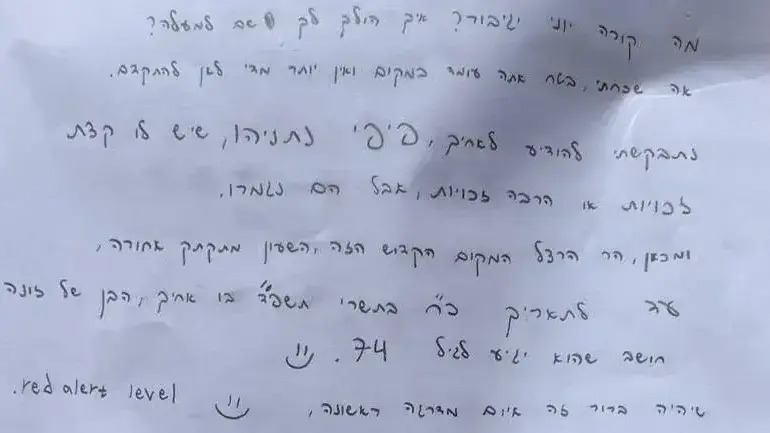 מה קורה יוני יגיבור? איך הולך לך שם למעלה?
אה שכחתי, בטח אתה עומד במקום ואין יותר מדי לאן להתקדם.
נתבקשתי להודיע לאחיך, פיפי נתניהו, שיש לו קצת
זכויות או הרבה זכויות, אבל הם נגמרו.
ומכאן, הר הרצל המקום הקדוש הזה, השעון מתקתק אחורה,
עד לתאריך כ״ח בתשרי תשפ״ד בו אחיך, הבן של זונה
חושב שהוא יגיע לגיל 74.
שיהיה ברור זה איום מדרגה ראשונה, red alert level.